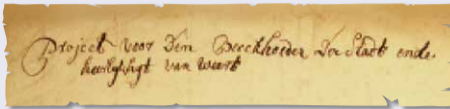 Project voor Den Berckhoeder Der Stadt ende
heerlykhyt van weert